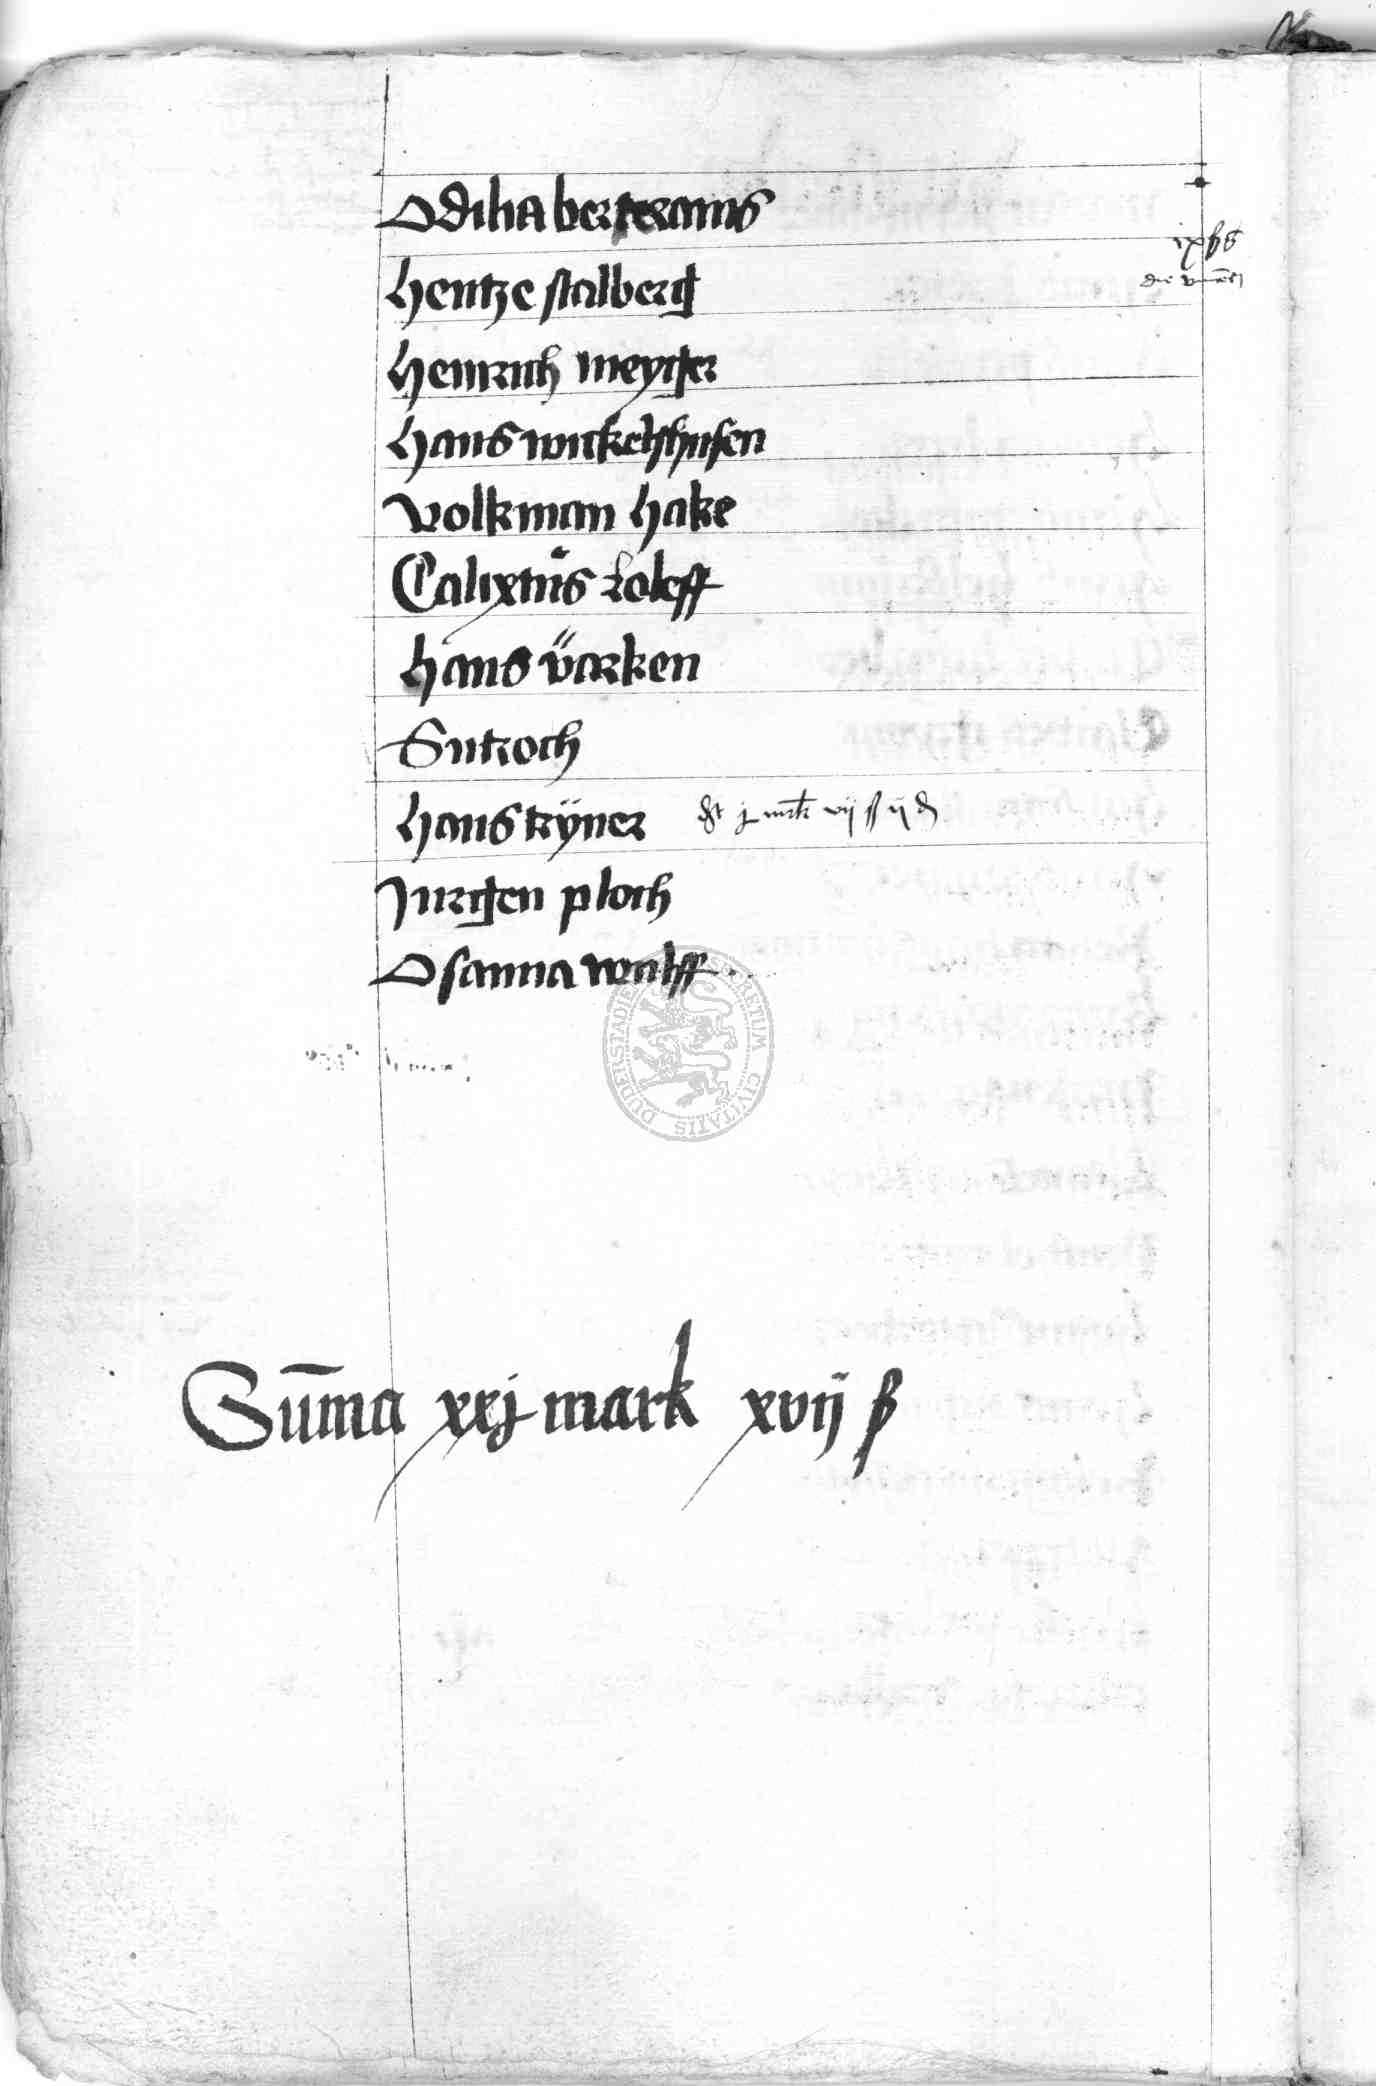 Odilia berteramis
ix ß
Hentze stalberg
Heinrich meyger
Hans wickelshusen
Volkman Hake
Calixtus Roleff
Hans varken
Sutroch
Hans kÿner dt j mrk vij ß ij d
Jurgen ploch
Osanna wulff
SECRETUM CIVITATIS DUDERSTADIE
Suma xxj mark xvij ß